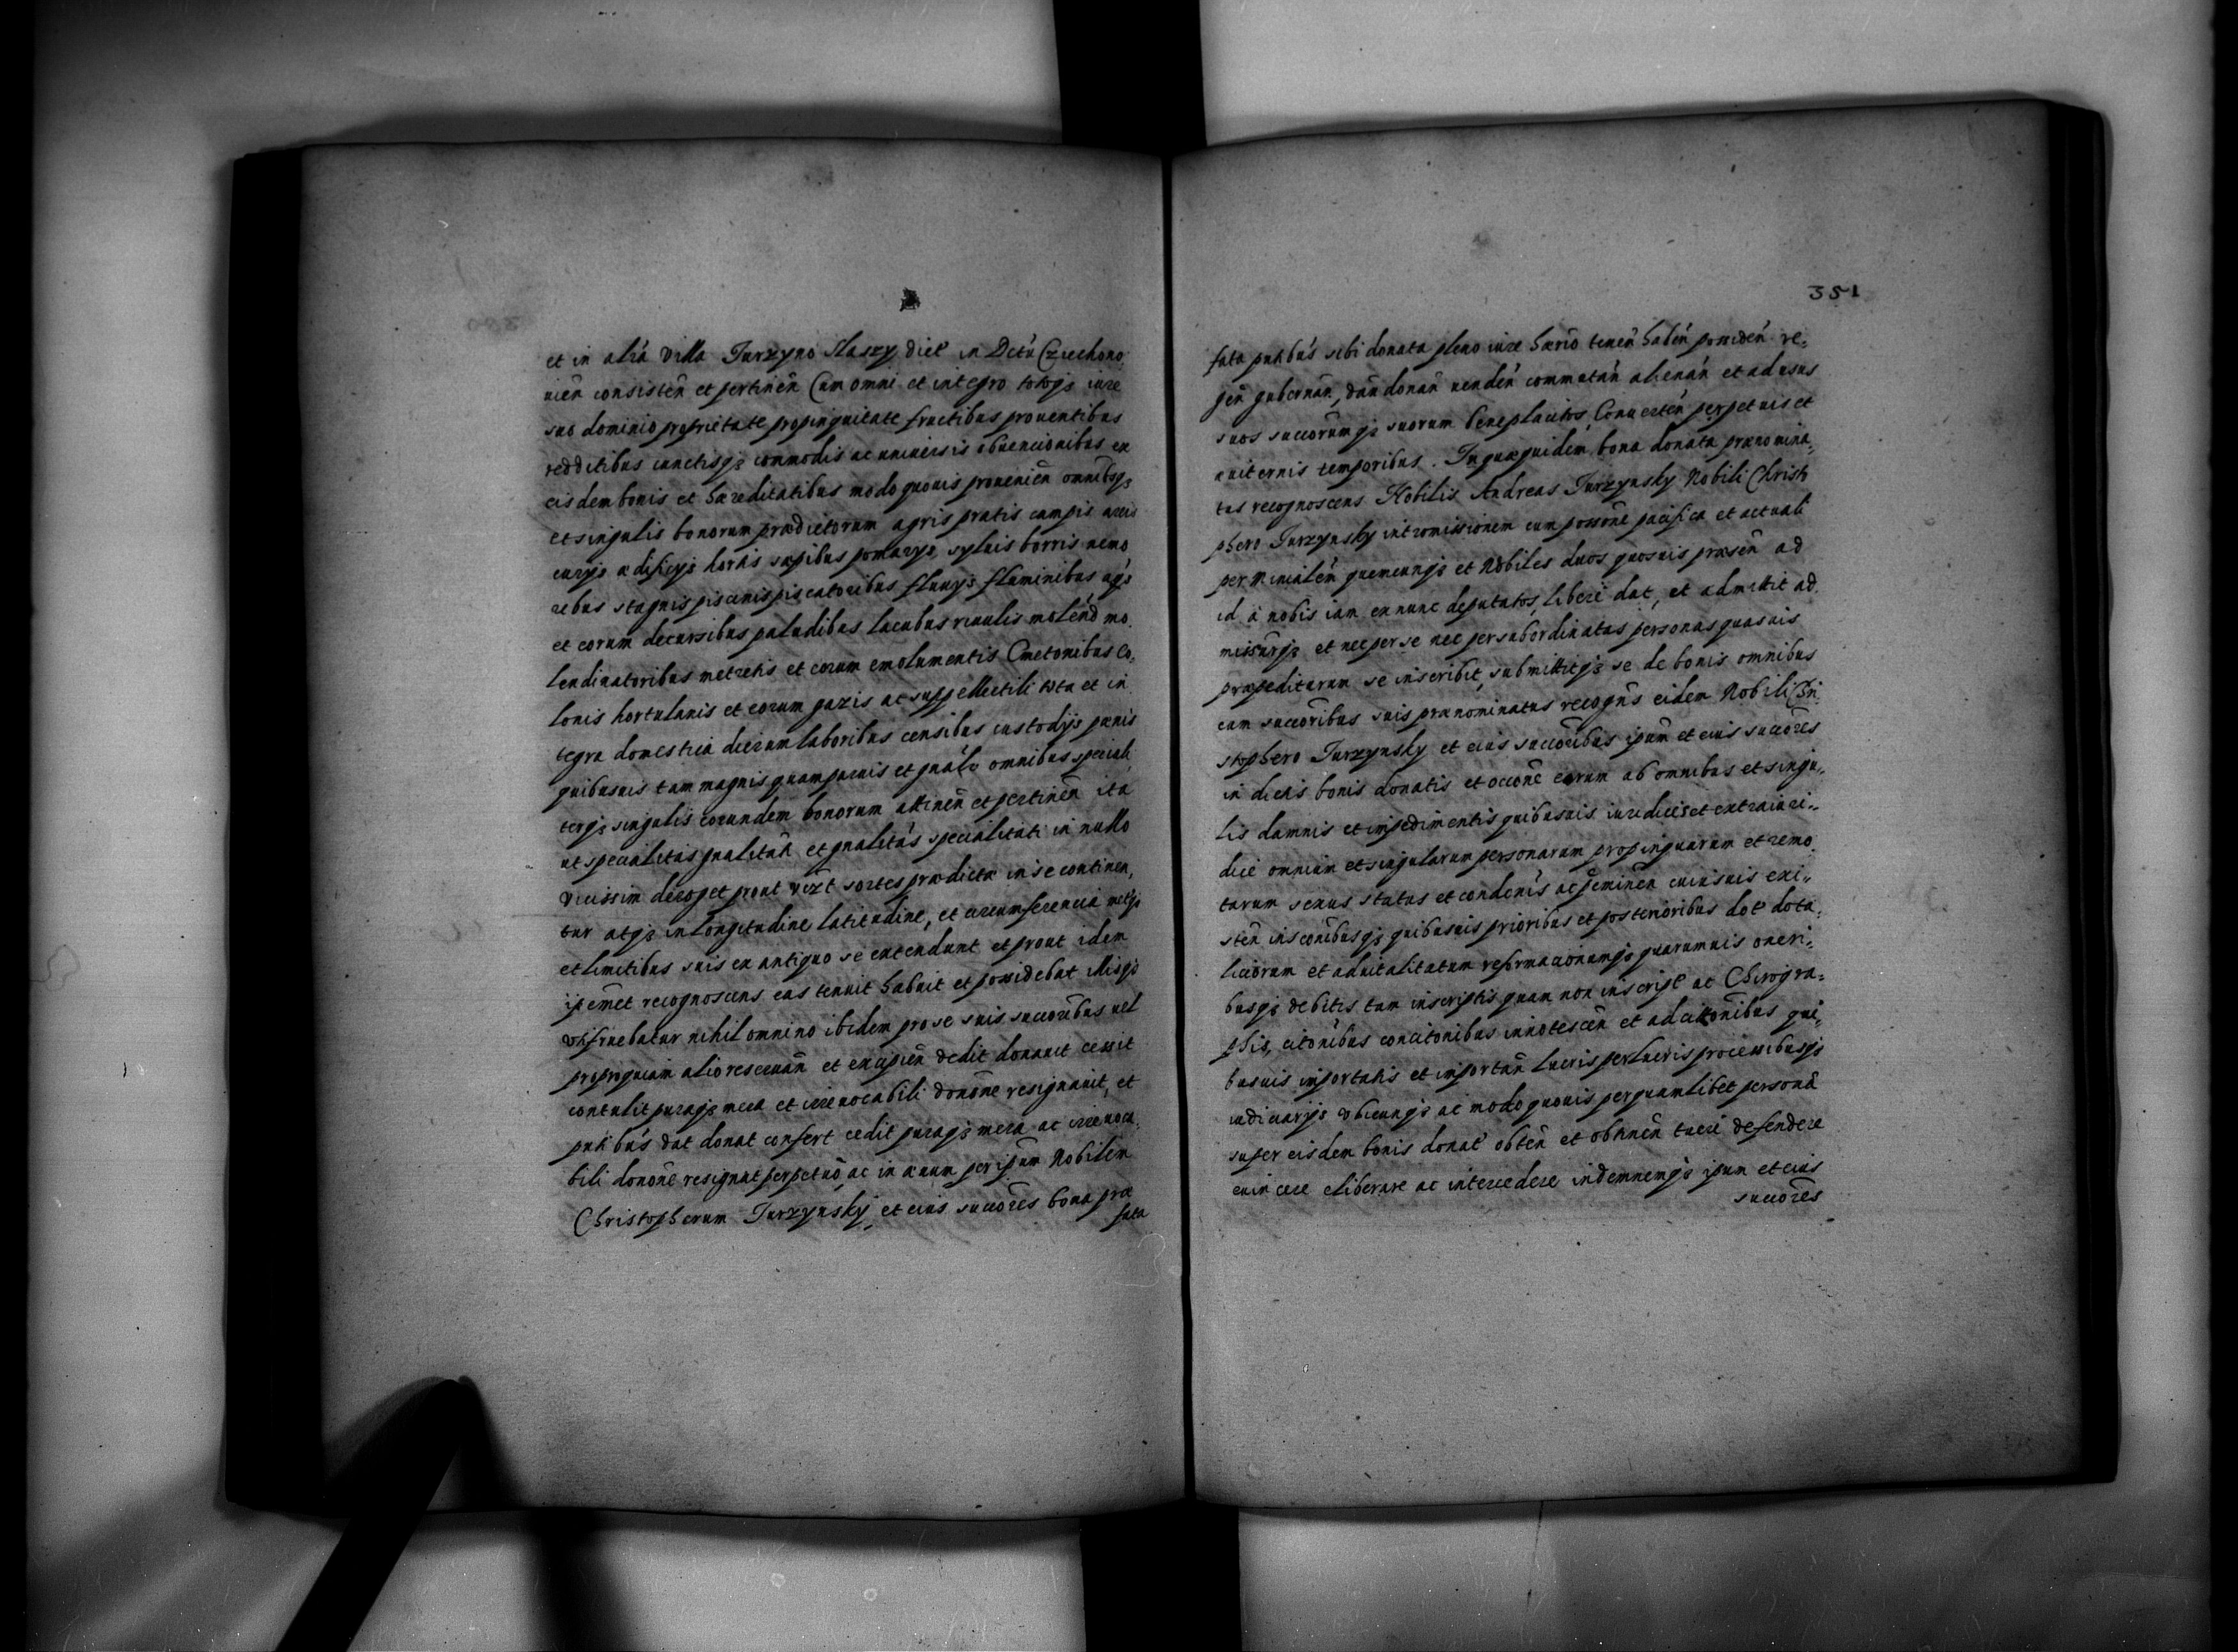 et in alia Villa Jurzyno Slaszy dict in Dctu Czechono
uien consisten et pertinen Cum omni et integro totoq3 iure
suo dominio proprietate propinquitate fructibus prouentibus
redditibus cunctisq3 commodis ac uniuersis obuencionibus ex
eisdem bonis et hæreditatibus modo quouis prouenien omnibusq3
et singulis bonorum prædictorum agris pratis campis areis
curijs ædificijs hortis sæpibus pomarijs syluis borris nemo
ribus stagnis piscinis piscatoribus fluuijs fluminibus aq3
et eorum decursibus paludibus lacubus riuulis molend mo
lendinatoribus metretis et eorum emolumentis Cmetonibus Co,
lonis hortulanis et eorum gazis ac suppellectili tota et in
tegra domestica dierum laboribus censibus custodijs pænis
quibusuis tam magnis quam paruis et gnalr omnibus speciali
terq3 singulis eorundem bonorum attinen et pertinen ita
ut specialitas gnalitati et gnalitas specialitati in nullo
vicissim deroget prout sortes prædictæ in se continen,
tur atq3 in longitudine latitudine, et circumferencia metis
et limitibus suis ex antiquo se extendunt et prout idem
ipemet recognoscens eas tenuit habuit et possidebat illisq3
vtifruebatur nihil omnino ibidem pro se suis succoribus uel
propinquiam alio reseruan et excipien dedit donauit cessit
contulit puraq3 mera et irreuocabili donone resignauit, et
pntibus dat donat confert cedit puraq3 mera ac irreuoca,
bili donone resignat perpetuo ac in æuum per ipsum Nobilem
Christopherum Jurzynsky, et eius succores bona præ
fata
351
fata pntibus sibi donata pleno iure hærio tenen haben possiden re,
gen gubernan, dan donan uenden commutan alienan et ad usus
suos succorumq3 suorum beneplacitos Conuerten perpetuis et
æuiternis temporibus. In quæquidem bona donata prænomina,
tus recognoscens Nobilis Andreas Jurzynsky Nobili Christo
phero Jurzynsky intromissionem cum possone pacifica et actuali
per Minialen quemcunq3 et Nobiles duos quosuis præsen ad
id a nobis iam ex nunc deputatos, liberè dat, et admittit ad
missurq3 et nec per se nec per subordinatas personas quasuis
præpediturum se inscribit, submittitq3 se de bonis omnibus
cum succoribus suis prænominatus recogns eidem Nobili Chri
stophero Jurzynsky et eius succoribus ipum et eius succores
in dictis bonis donatis et occone earum ab omnibus et singu,,
lis damnis et impedimentis quibusuis iuredicis et extraiuri,,
dicè omnium et singularum personarum propinquarum et remo
tarum sexus status et condenis ac pæminen cuiusuis exi,,
sten insconibusq3 quibusuis prioribus et posterioribus dot dota,
liciorum et aduitalitatum reformacionumq3 quarumuis oneri,
busq3 debitis tam inscriptis quam non inscript ac Chirogra,
phis, citonibus concitonibus innotescen et adcitonibus qui,
busuis importatis et importan lucris perlucris processibusq3
iudiciarijs vbicunq3 ac modo quouis per quamlibet personã
super eisdem bonis donat obten et obtinen tueri defendere
euincere eliberare ac intercedere indemnemq3 ipum et eius
succores